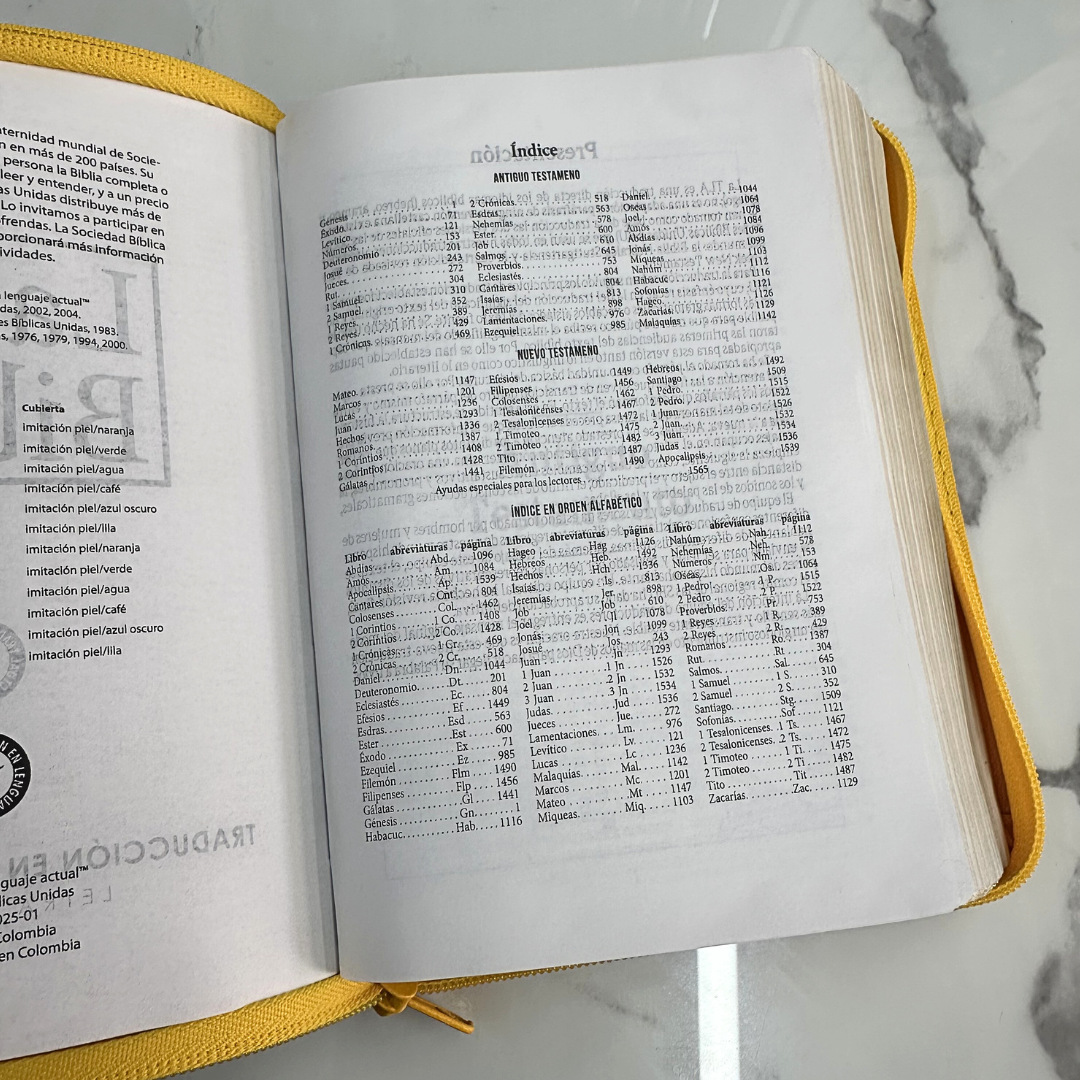 ternidad mundial de Socie-
n en más de 200 países. Su
persona la Biblia completa o
leer y entender, y a un precio
as Unidas distribuye más de
Lo invitamos a participar en
ofrendas. La Sociedad Bíblica
porcionará más información
ividades.
lenguaje actual™
das, 2002, 2004.
es Bíblicas Unidas, 1983.
s, 1976, 1979, 1994, 2000.
Cubierta
imitación piel/naranja
imitación piel/verde
imitación piel/agua
imitación piel/café
imitación piel/azul oscuro
imitación piel/lila
imitación piel/naranja
imitación piel/verde
imitación piel/agua
imitación piel/café
imitación piel/azul oscuro
imitación piel/lila
guaje actual™
licas Unidas
025-01
Colombia
en Colombia
Índice
ANTIGUO TESTAMENO
Génesis
Éxodo 71
Levítico 121
Números 153
Deuteronomio 201
Josué 243
Jueces 272
Rut 304
1 Samuel 310
2 Samuel 352
1 Reyes 389
2 Reyes 429
1 Crónicas 469
2 Crónicas 518
Esdras 563
Nehemías 578
Ester 600
Job 610
Salmos 645
Proverbios 753
Eclesiastés 804
Cantares 804
Isaías 813
Jeremías 898
Lamentaciones 976
Ezequiel 985
Daniel 1044
Oseas 1064
Joel 1078
Amós 1084
Abdías 1096
Jonás 1099
Miqueas 1103
Nahúm 1112
Habacuc 1116
Sofonías 1121
Hageo 1126
Zacarías 1129
Malaquías 1142
NUEVO TESTAMENO
Mateo 1147
Marcos 1201
Lucas 1236
Juan 1293
Hechos 1336
Romanos 1387
1 Corintios 1408
2 Corintios 1428
Gálatas 1441
Efesios 1449
Filipenses 1456
Colosenses 1462
1 Tesalonicenses 1467
2 Tesalonicenses 1472
1 Timoteo 1475
2 Timoteo 1482
Tito 1487
Filemón 1490
Hebreos 1492
Santiago 1509
1 Pedro 1515
2 Pedro 1522
1 Juan 1526
2 Juan 1532
3 Juan 1534
Judas 1536
Apocalipsis 1539
Ayudas especiales para los lectores 1565
ÍNDICE EN ORDEN ALFABÉTICO
Libro abreviaturas página
Abdías Abd. 1096
Amós Am. 1084
Apocalipsis Ap. 1539
Cantares Cnt. 804
Colosenses Col. 1462
1 Corintios 1 Co. 1408
2 Corintios 2 Co. 1428
1 Crónicas 1 Cr. 469
2 Crónicas 2 Cr. 518
Daniel Dn. 1044
Deuteronomio Dt. 201
Eclesiastés Ec. 804
Efesios Ef 1449
Esdras Esd 563
Ester Est 600
Éxodo Ex 71
Ezequiel Ez 985
Filemón Flm 1490
Filipenses Flp 1456
Gálatas Gl 1441
Génesis Gn. 1
Habacuc Hab. 1116
Libro abreviaturas página
Hageo Hag 1126
Hebreos Heb. 1492
Hechos Hch
Isaías Is. 813
Jeremías Jer. 898
Job Job 610
Joel Jl 1078
Jonás Jon 1099
Josué Jos. 243
Juan Jn 1293
1 Juan 1 Jn 1526
2 Juan 2 Jn 1532
3 Juan 3 Jn 1534
Judas Jud 1536
Jueces Jue. 272
Lamentaciones Lm. 976
Levítico Lv. 121
Lucas Lc 1236
Malaquías Mal. 1142
Marcos Mc. 1201
Mateo Mt 1147
Miqueas Miq. 1103
Libro abreviaturas página
Nahúm Nah. 1112
Nehemías Neh. 578
Números Nm. 153
Oseas Os. 1064
1 Pedro 1 P. 1515
2 Pedro 2 P. 1522
Proverbios Pr. 753
1 Reyes 1 R. 389
2 Reyes 2 R. 429
Romanos Ro. 1387
Rut Rt 304
Salmos Sal. 645
1 Samuel 1 S. 310
2 Samuel 2 S. 352
Santiago Stg. 1509
Sofonías Sof 1121
1 Tesalonicenses 1 Ts. 1467
2 Tesalonicenses 2 Ts. 1472
1 Timoteo 1 Ti. 1475
2 Timoteo 2 Ti. 1482
Tito Tit 1487
Zacarías Zac. 1129